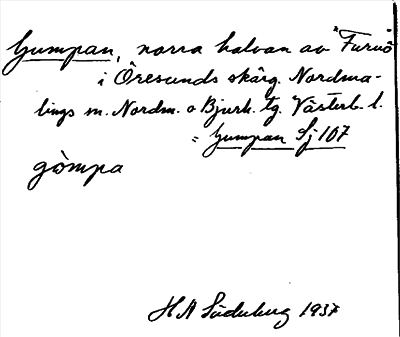 Gumpan, norra halvan av "Furuö
i Öresunds skärg. Nordma-
lings sn. Nordm. o Bjurh. tg. Västerb. l.
= Gumpan Sj 107
gòmpa
H A Söderberg 1937